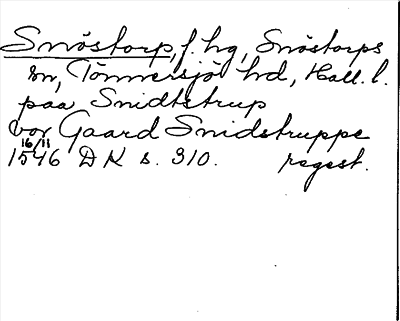 Snöstorp, f. hg, Snöstorps
sn, Tönnersjö hd, Hall. l.
paa Snidtstrup
vor Gaard Snidstruppe
16/11
1546 DK s. 310. regest.